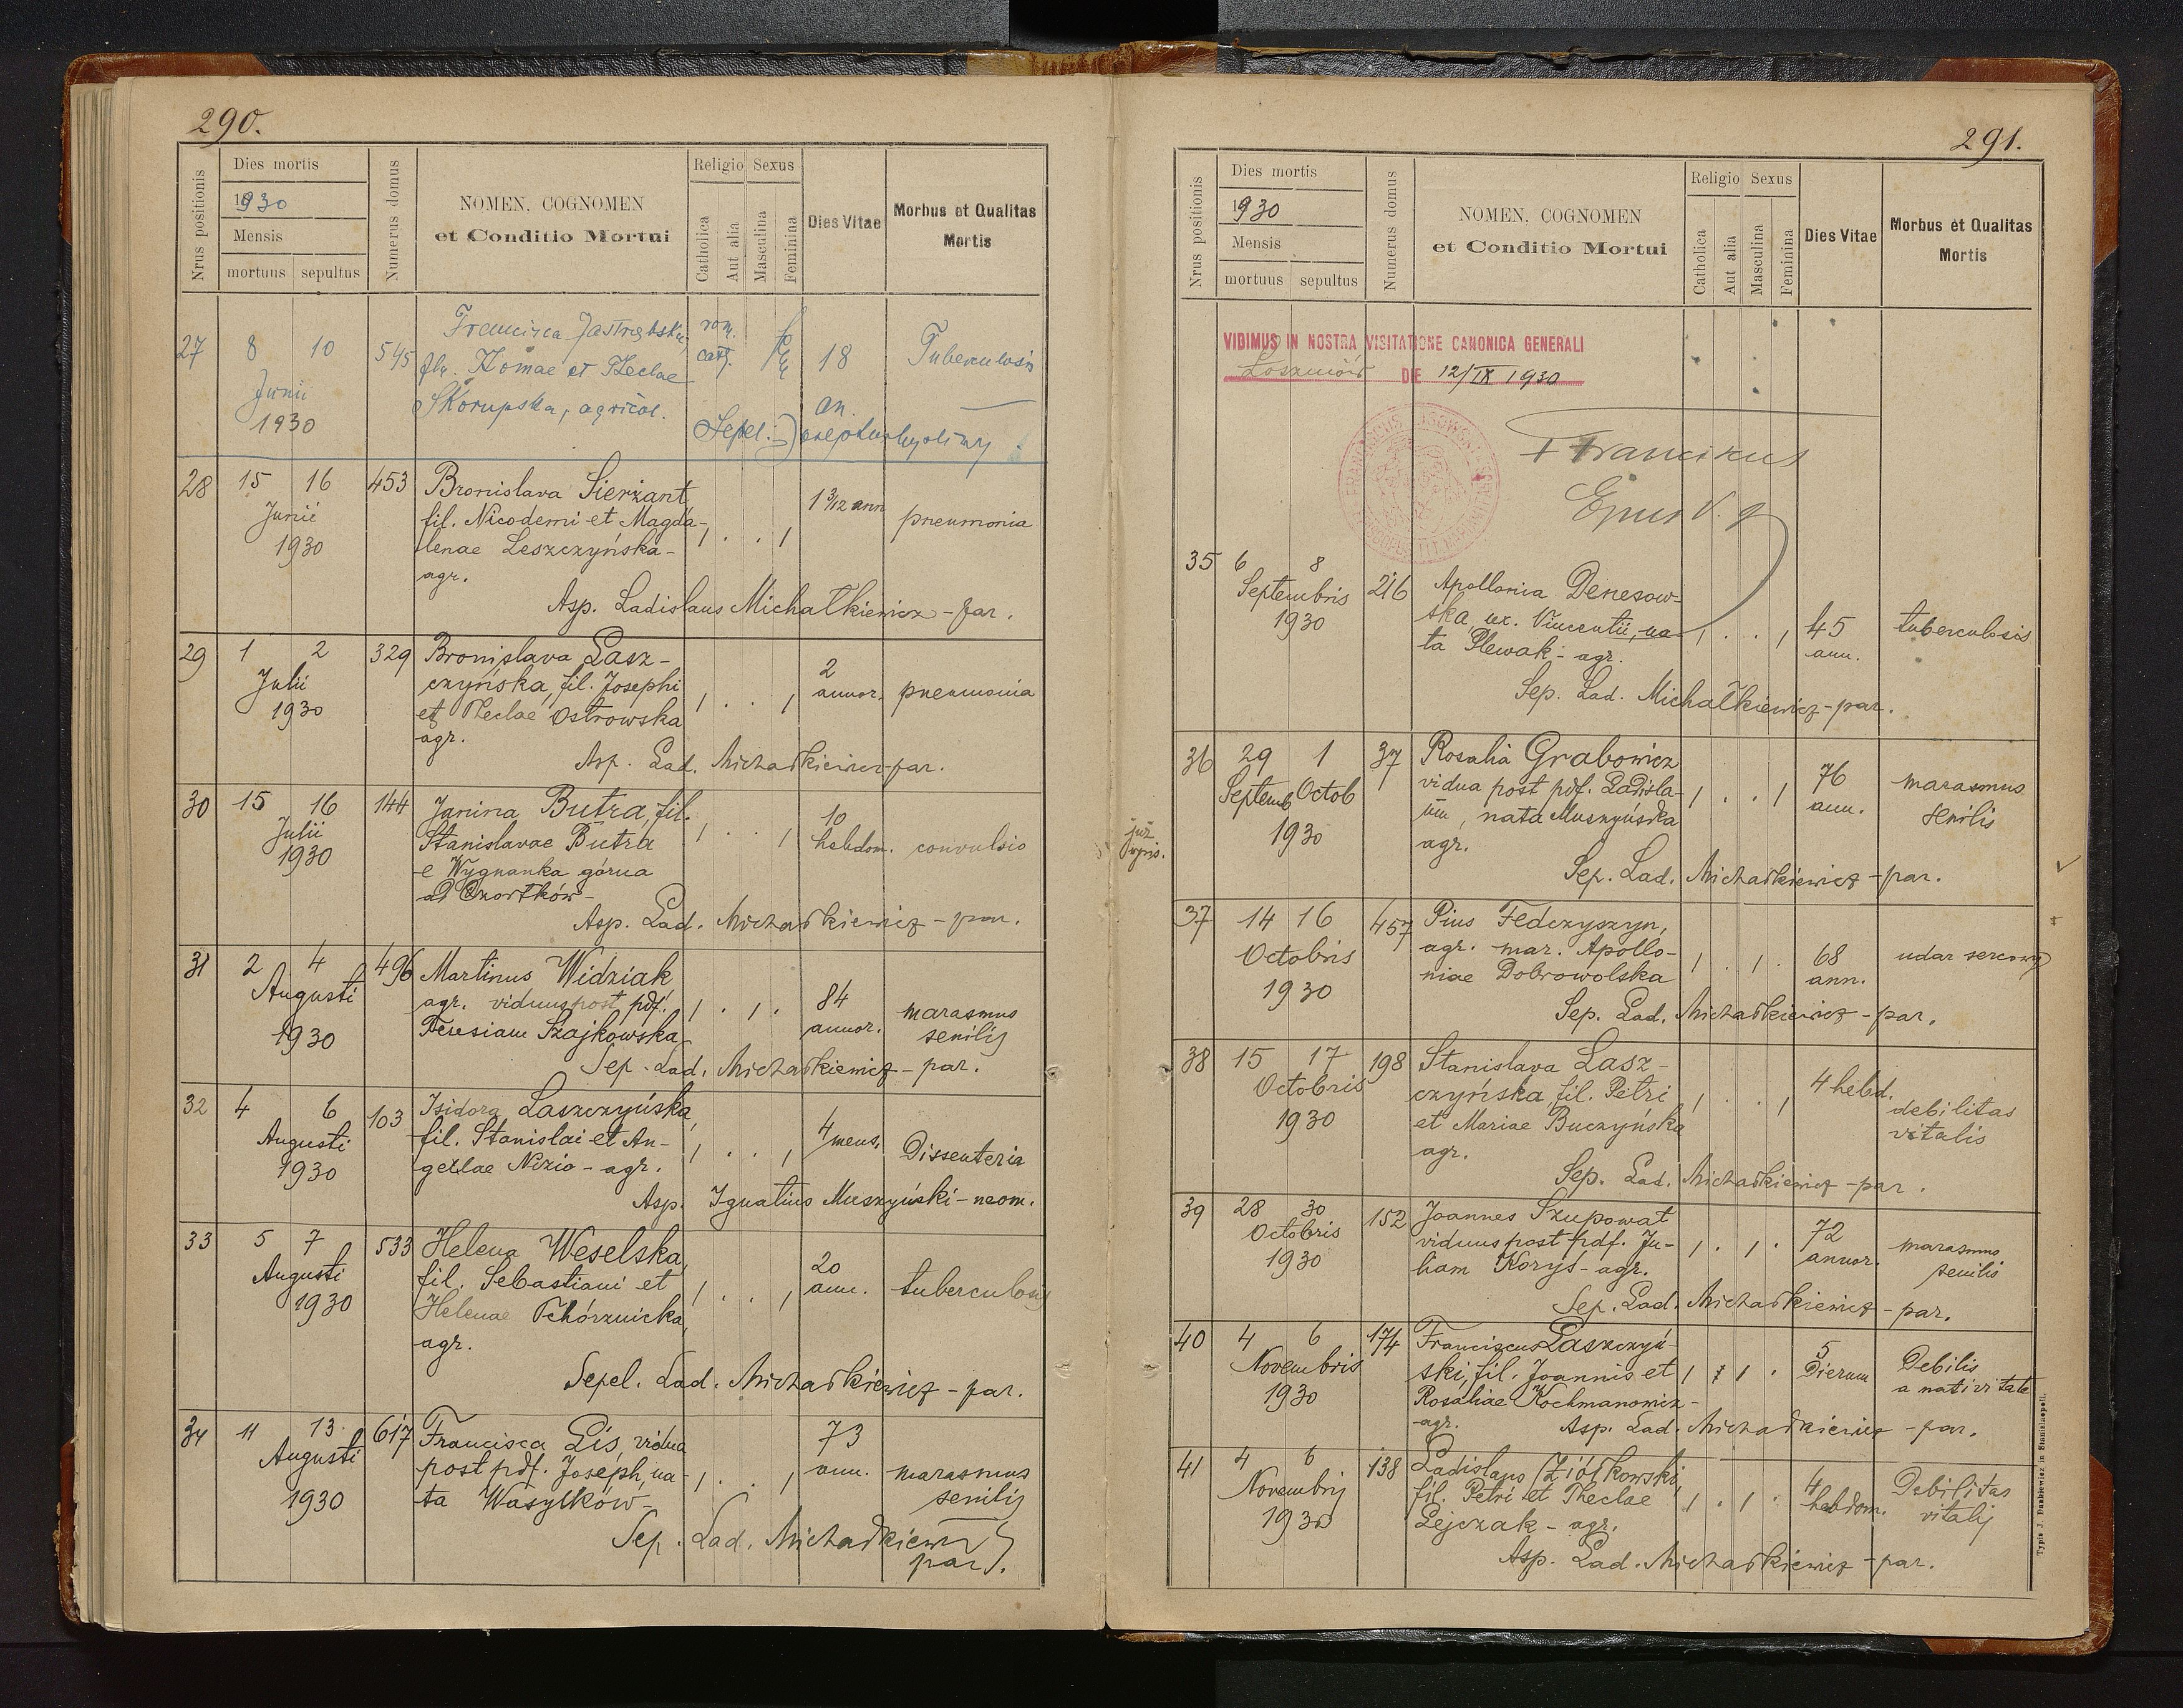 290.
Nrus positionis
Dies mortis
1930
Mensis
mortuus sepultus
Numerus domus
NOMEN, COGNOMEN
et Conditio Mortui
Religio Sexus
Catholica
Aut alia
Masculina
Feminina
Dies Vitae
Morbus et Qualitas
Mortis
27 8 10 545 Francisca Jastrębska,
Junii
1930
et Theclae
Skorupska, agricol.
rom.
cath.
18
an.
Tuberculosis
Sepel.
28 15 16 453 Bronislava Sierżant
Junii
1930
fil. Nicodemi et Magda-
lenae Leszczyńska -
agr.
1 . . 1
1 3/12 ann
pneumonia
Asp. Ladislaus Michałkiewicz - par.
29 1 2 329 Bronislava Lasz-
Julii
1930
czyńska, fil. Josephi
et Theclae Ostrowska
agr.
1 . . 1
2
annor.
pneumonia
Asp. Lad. Michałkiewicz - par.
30 15 16 144 Janina Butra, fil.
Julii
1930
Stanislavae Butra
e Wygnanka górna
ad Czortków -
1 . . 1
10
hebdom.
convulsio
Asp. Lad. Michałkiewicz - par.
31 2 4 496 Martinus Widziak
Augusti
1930
agr. viduus post pdf.
Teresiam Szajkowska
1 . 1 .
84
annor.
marasmus
senilis
Sep. Lad. Michałkiewicz - par.
32 4 6 103 Isidora Laszczyńska,
Augusti
1930
fil. Stanislai et An-
gellae Nizio - agr.
1 . . 1
4 mens.
Dissenteria
Asp. Ignatius Muszyński - neom.
33 5 7 533 Helena Weselska,
Augusti
1930
fil. Sebastiani et
Helenae Tchórznicka,
agr.
1 . . 1
20
ann.
tuberculosis
Sepel. Lad. Michałkiewicz - par.
34 11 13 617 Francisca Lis, vidua
Augusti
1930
post pdf. Joseph, na-
ta Wasylków -
1 . . 1
73
ann.
marasmus
senilis
Sep. Lad. Michałkiewicz
par.
291.
Nrus positionis
Dies mortis
1930
Mensis
mortuus sepultus
Numerus domus
NOMEN, COGNOMEN
et Conditio Mortui
Religio Sexus
Catholica
Aut alia
Masculina
Feminina
Dies Vitae
Morbus et Qualitas
Mortis
VIDIMUS IN NOSTRA VISITATIONE CANONICA GENERALI
Łoszniów DIE 12/IX 1930
+ Franciscus
Eppus
35 6 8 216 Apollonia Denesow-
Septembris
1930
ska, ux. Vincentii, na-
ta Plewak - agr.
1 . . 1
45
ann.
tuberculosis
Sep. Lad. Michałkiewicz - par.
36 29 1 37 Rosalia Grabowicz
Septemb Octob
1930
vidua post pdf. Ladisla-
um, nata Muszyńska
agr.
1 . . 1
76
ann.
marasmus
senilis
Sep. Lad. Michałkiewicz - par.
już
37 14 16 457 Pius Fedczyszyn,
Octobris
1930
agr. mar. Apollo-
niae Dobrowolska
1 . 1 .
68
ann.
udar sercowy
Sep. Lad. Michałkiewicz - par.
38 15 17 198 Stanislava Lasz-
Octobris
1930
czyńska, fil. Petri
et Mariae Buczyńska
agr.
1 . . 1
4 hebd.
debilitas
vitalis
Sep. Lad. Michałkiewicz - par.
39 28 30 152 Joannes Szupowat
Octobris
1930
viduus post pdf. Ju-
liam Koryś - agr.
1 . 1 .
72
annor.
marasmus
senilis
Sep. Lad. Michałkiewicz - par.
40 4 6 174 Franciscus Laszczyń-
Novembris
1930
ski, fil. Joannis et
Rosaliae Kochmanowicz -
agr.
5
Dierum
Debilis
a nativitate
Asp. Lad. Michałkiewicz - par.
41 4 6 138 Ladislaus Ziółkowski,
Novembris
1930
fil. Petri et Theclae
Lejczak - agr.
1 . 1 .
4
hebdom.
Debilitas
vitalis
Asp. Lad. Michałkiewicz - par.
Typis J. Dankiewicz in Stanislaopoli.